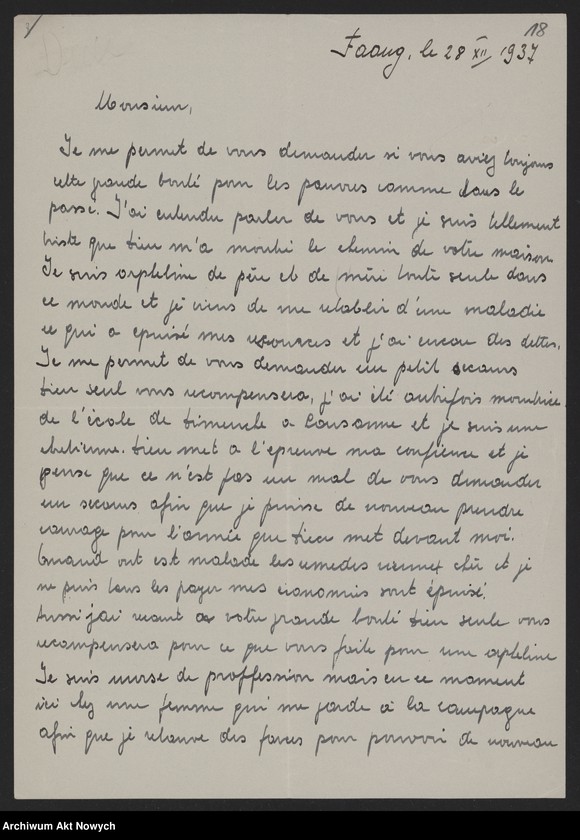 18
Faoug, le 28 XII 1937
Monsieur,
Je me permet de vous demander si vous aviez toujours
cette grande bonté pour les pauvres comme dans le
passé. J'ai entendu parler de vous et je suis tellement
triste que Dieu m'a montré le chemin de votre maison
Je suis orpheline de père et de mère toute seule dans
ce monde et je viens de me retablir d'une maladie
ce qui a epuisé mes resources et j'ai encore des dettes.
Je me permet de vous demander un petit secours
Dieu seul vous recompensera, j'ai été autrefois monitrice
de l'école de dimenche a Lausanne et je suis une
chretienne. Dieu met a l'epreuve ma confience et je
pense que ce n'est pas un mal de vous demander
un secours afin que je puisse de nouveau prendre
courage pour l'année que Dieu met devant moi.
Quand ont est malade les remedes viennet chèr et je
ne puis tous les payer mes economies sont épuisé.
Aussi j'ai recour a votre grande bonté Dieu seule vous
recompensera pour ce que vous faite pour une orpheline
Je suis nurse de proffession mais en ce moment
ici chez une femme qui me garde à la campagne
afin que je retrouve des forces pour pouvoir de nouveau
Archiwum Akt Nowych